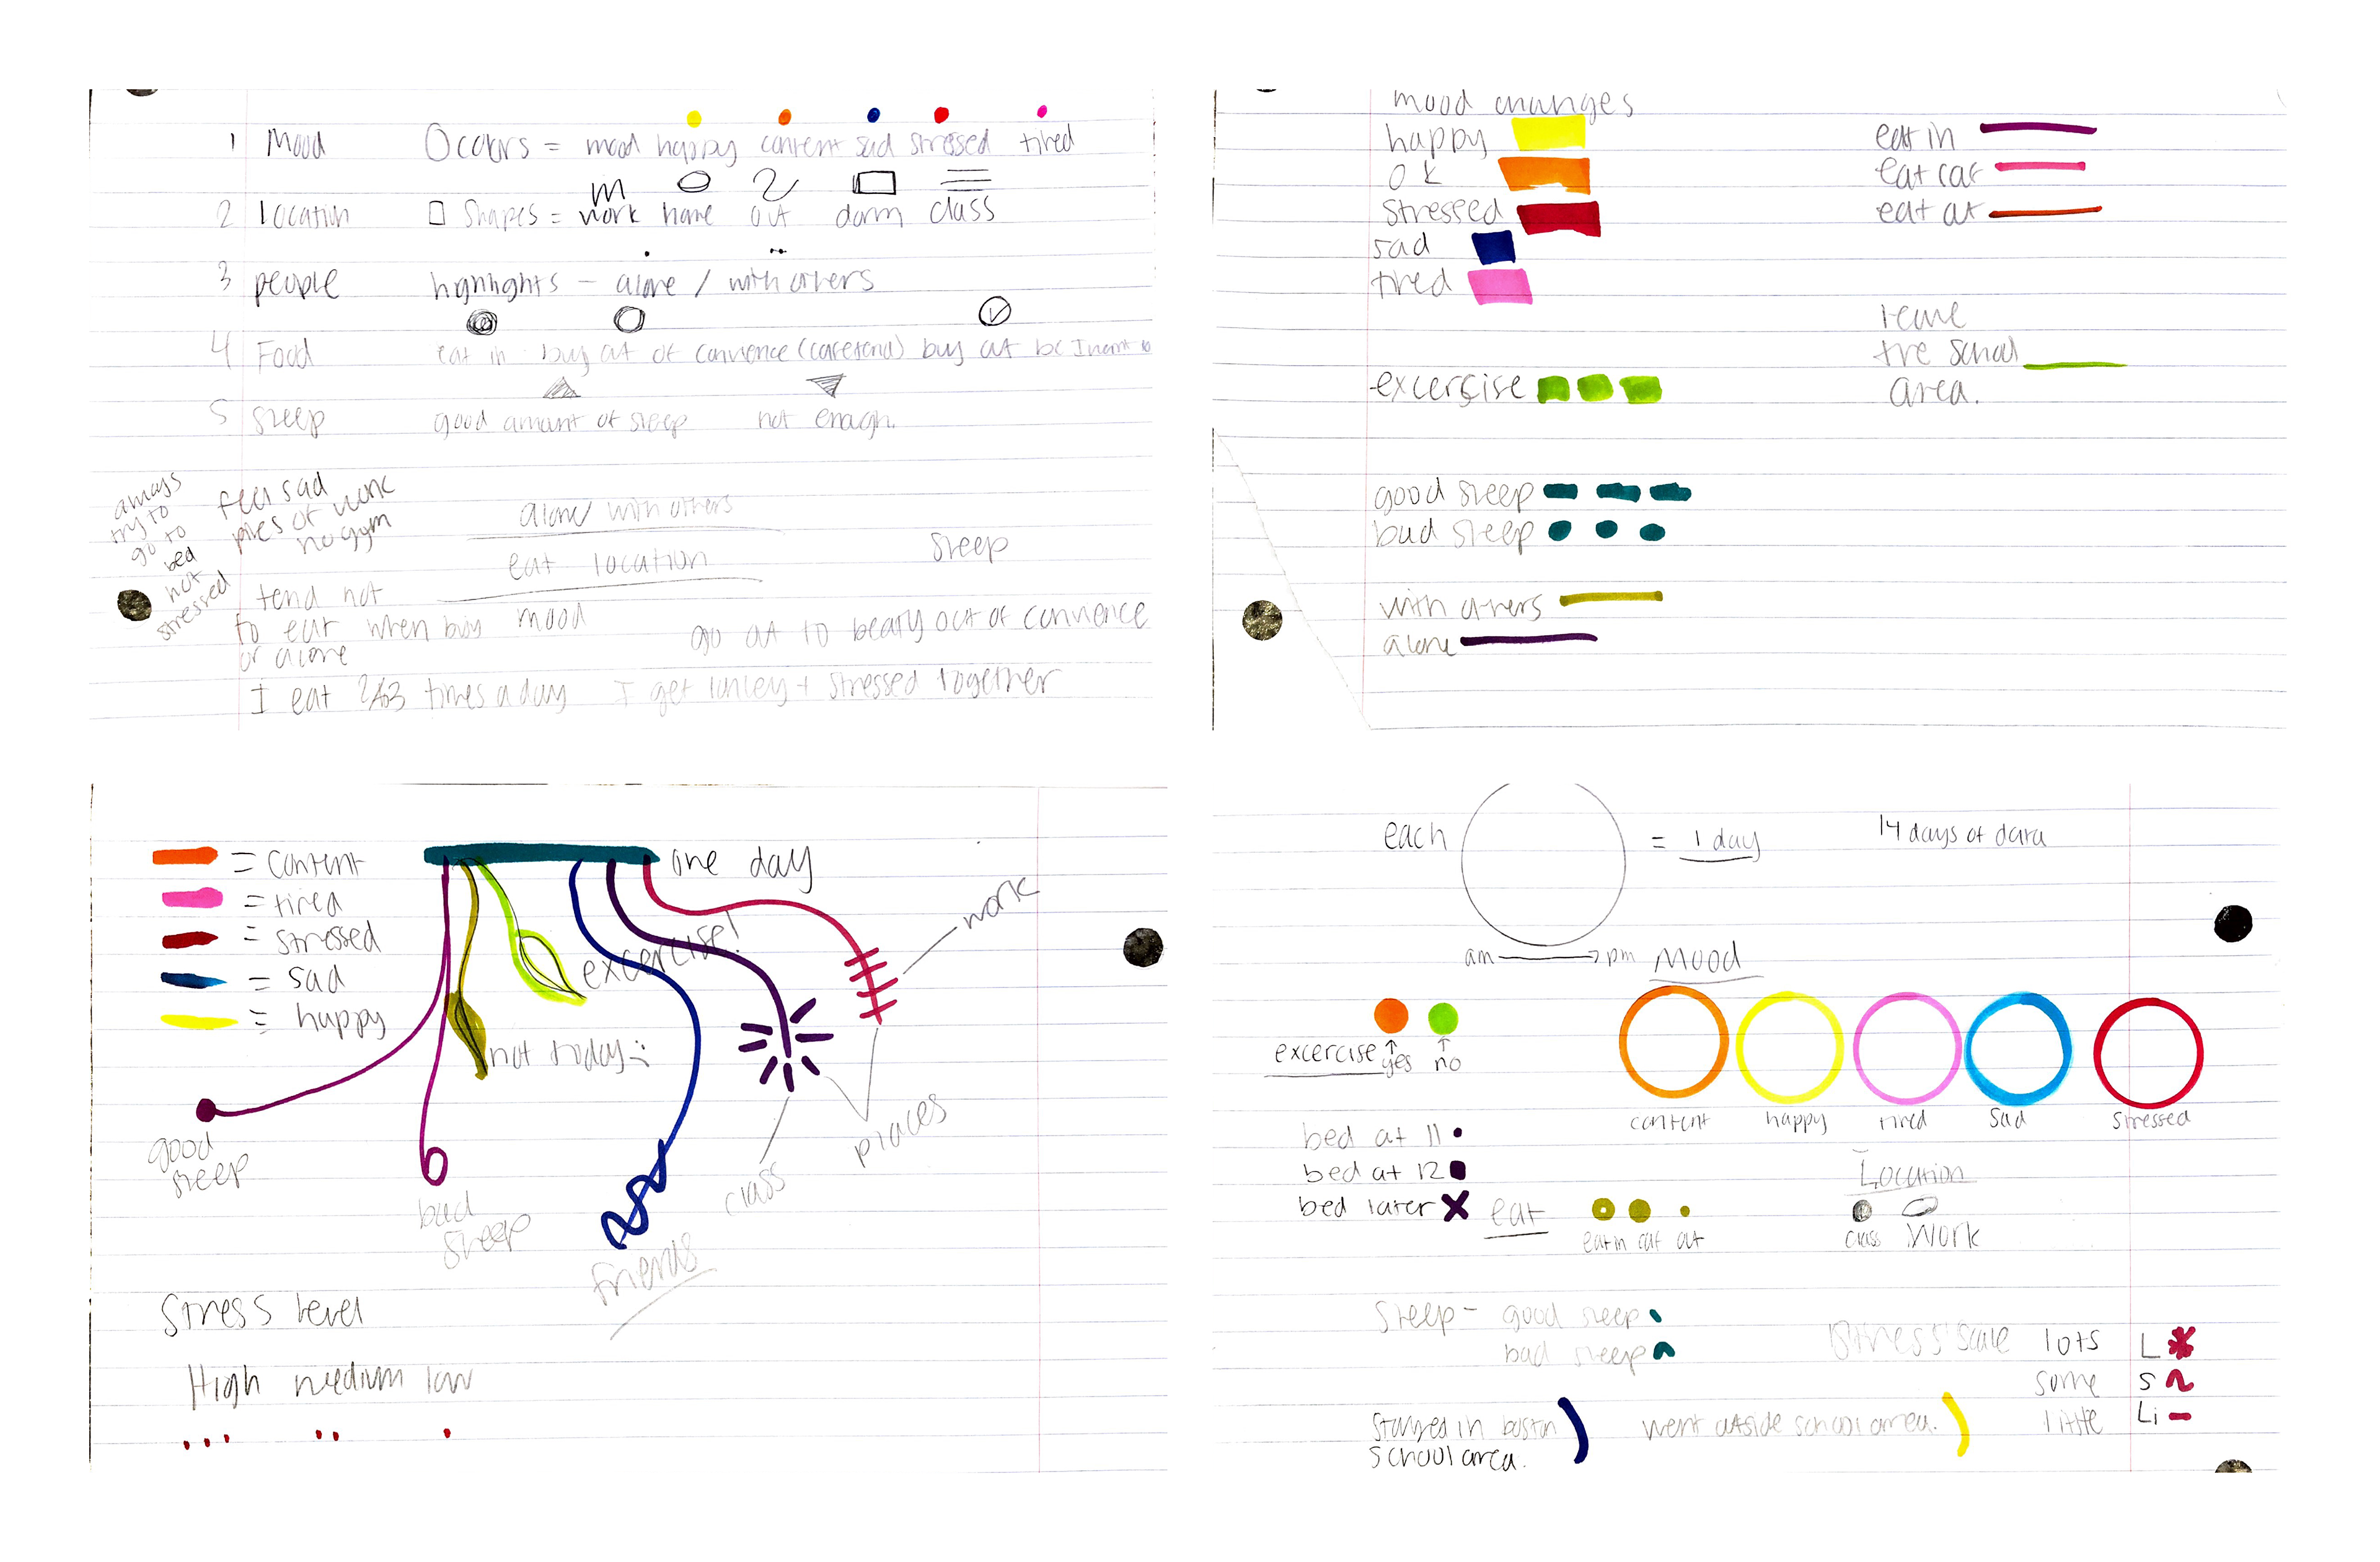 1 Mood O colors = mood happy content sad stressed tired
2 Location □ shapes = work home out dorm class
3 people highlights - alone / with others
4 Food eat in buy out of convience (cafe food) buy out bc I want to
5 sleep good amount of sleep not enough.
always
try to
go to
bed
not
stressed
feel sad
piles of work
no gym
alone/ with others
eat location
mood
sleep
tend not
to eat when busy
or alone
go out to beary out of convience
I eat 2to3 times a day I get lonley + stressed together
mood changes
happy
ok
stressed
sad
tired
excercise
eat in
eat caf
eat out
leave
the school
area.
good sleep
bad sleep
with others
alone
= content
= tired
= stressed
= sad
= happy
one day
work
excercise!
not today :
places
good
sleep
bad
sleep
class
friends
Stress level
High medium low
each = 1 day 14 days of data
am pm Mood
excercise yes no
content happy tired sad stressed
bed at 11
bed at 12
bed later
eat
eat in caf out
Location
class work
Sleep - good sleep
bad sleep
Stress scale lots L
some S
little Li
stayed in boston
school area.
went outside school area.